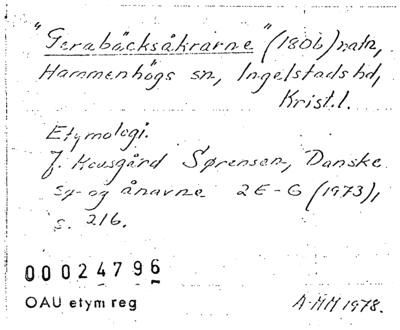 "Gerabäcksåkrarne" (1806) natn,
Hammenhögs sn, Ingelstads hd,
Krist.l.
Etymologi.
J. Kousgård Sørensen, Danske
sø- og ånavne 2 E-G (1973),
s. 216.
00024796
OAU etym reg
A-MM 1978.